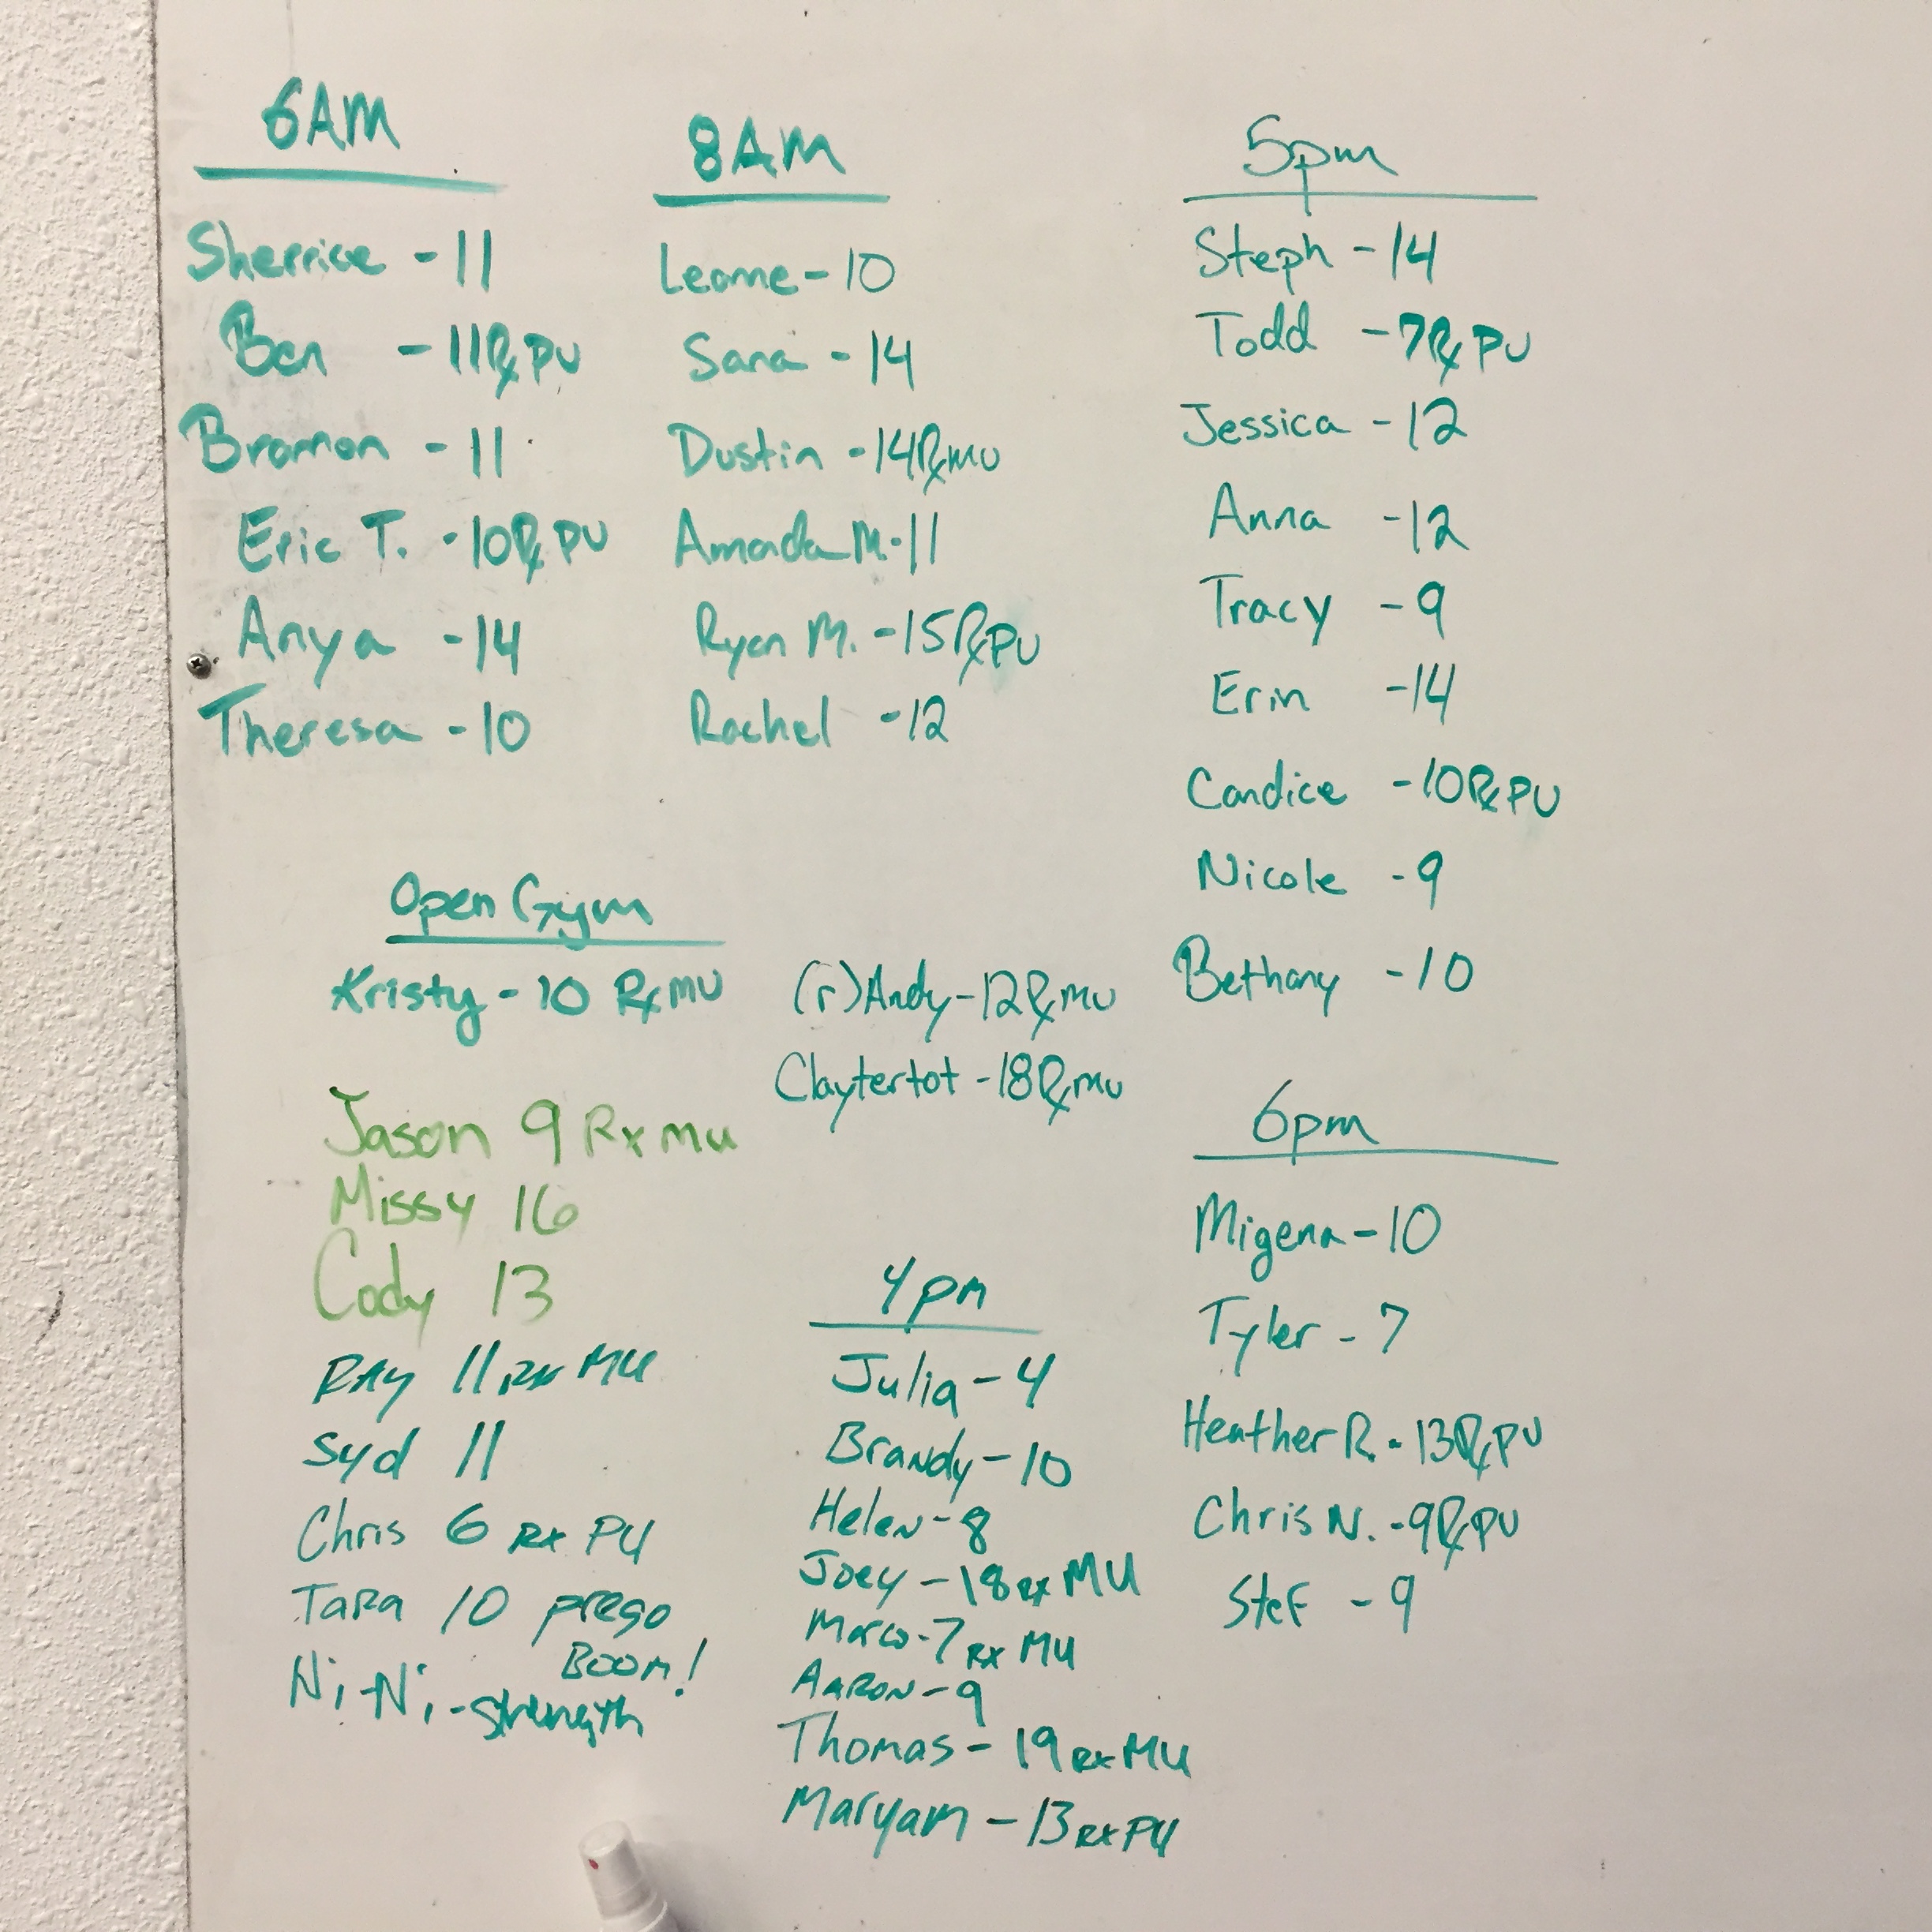 6AM
Sherrice - 11
Ben - 11 Rx PU
Brannon - 11
Eric T. - 10 Rx PU
Anya - 14
Theresa - 10
8AM
Leanne - 10
Sara - 14
Dustin - 14 Rx MU
Amanda M. - 11
Ryan M. - 15 Rx PU
Rachel - 12
Open Gym
Kristy - 10 Rx MU
Jason 9 Rx MU
Missy 16
Cody 13
RAY 11 Rx MU
Syd 11
Chris 6 Rx PU
Tara 10 prego
Boom!
Ni-Ni - strength
(r)Andy - 12 Rx MU
Claytertot - 18 Rx MU
4pm
Julia - 4
Brandy - 10
Helen - 8
Joey - 18 Rx MU
Marco - 7 Rx MU
Aaron - 9
Thomas - 19 Rx MU
Maryam - 13 Rx PU
5pm
Steph - 14
Todd - 7 Rx PU
Jessica - 12
Anna - 12
Tracy - 9
Erin - 14
Candice - 10 Rx PU
Nicole - 9
Bethany - 10
6pm
Migena - 10
Tyler - 7
Heather R. - 13 Rx PU
Chris N. - 9 Rx PU
Stef - 9